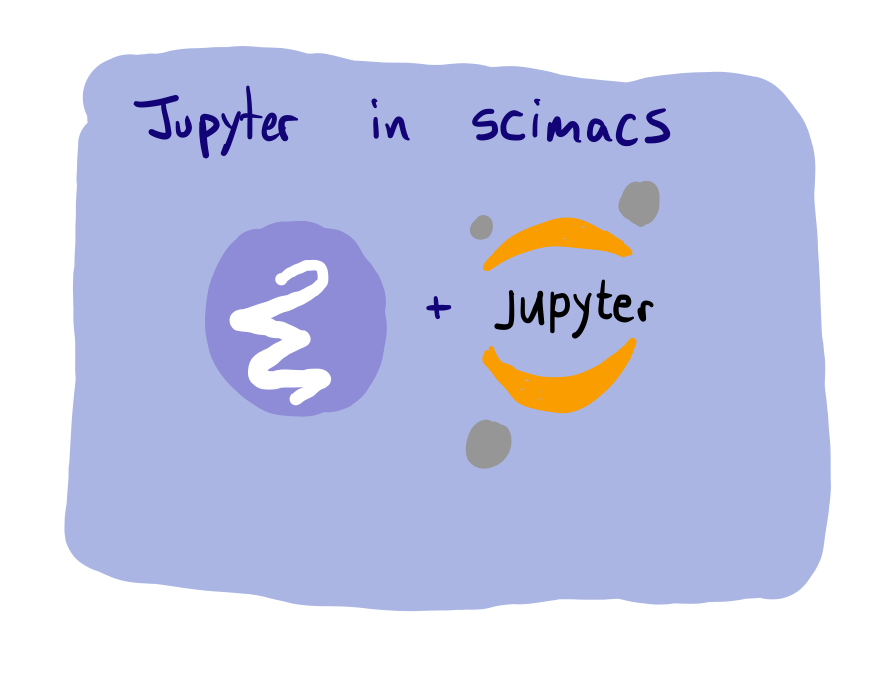 Jupyter in scimacs
+ Jupyter